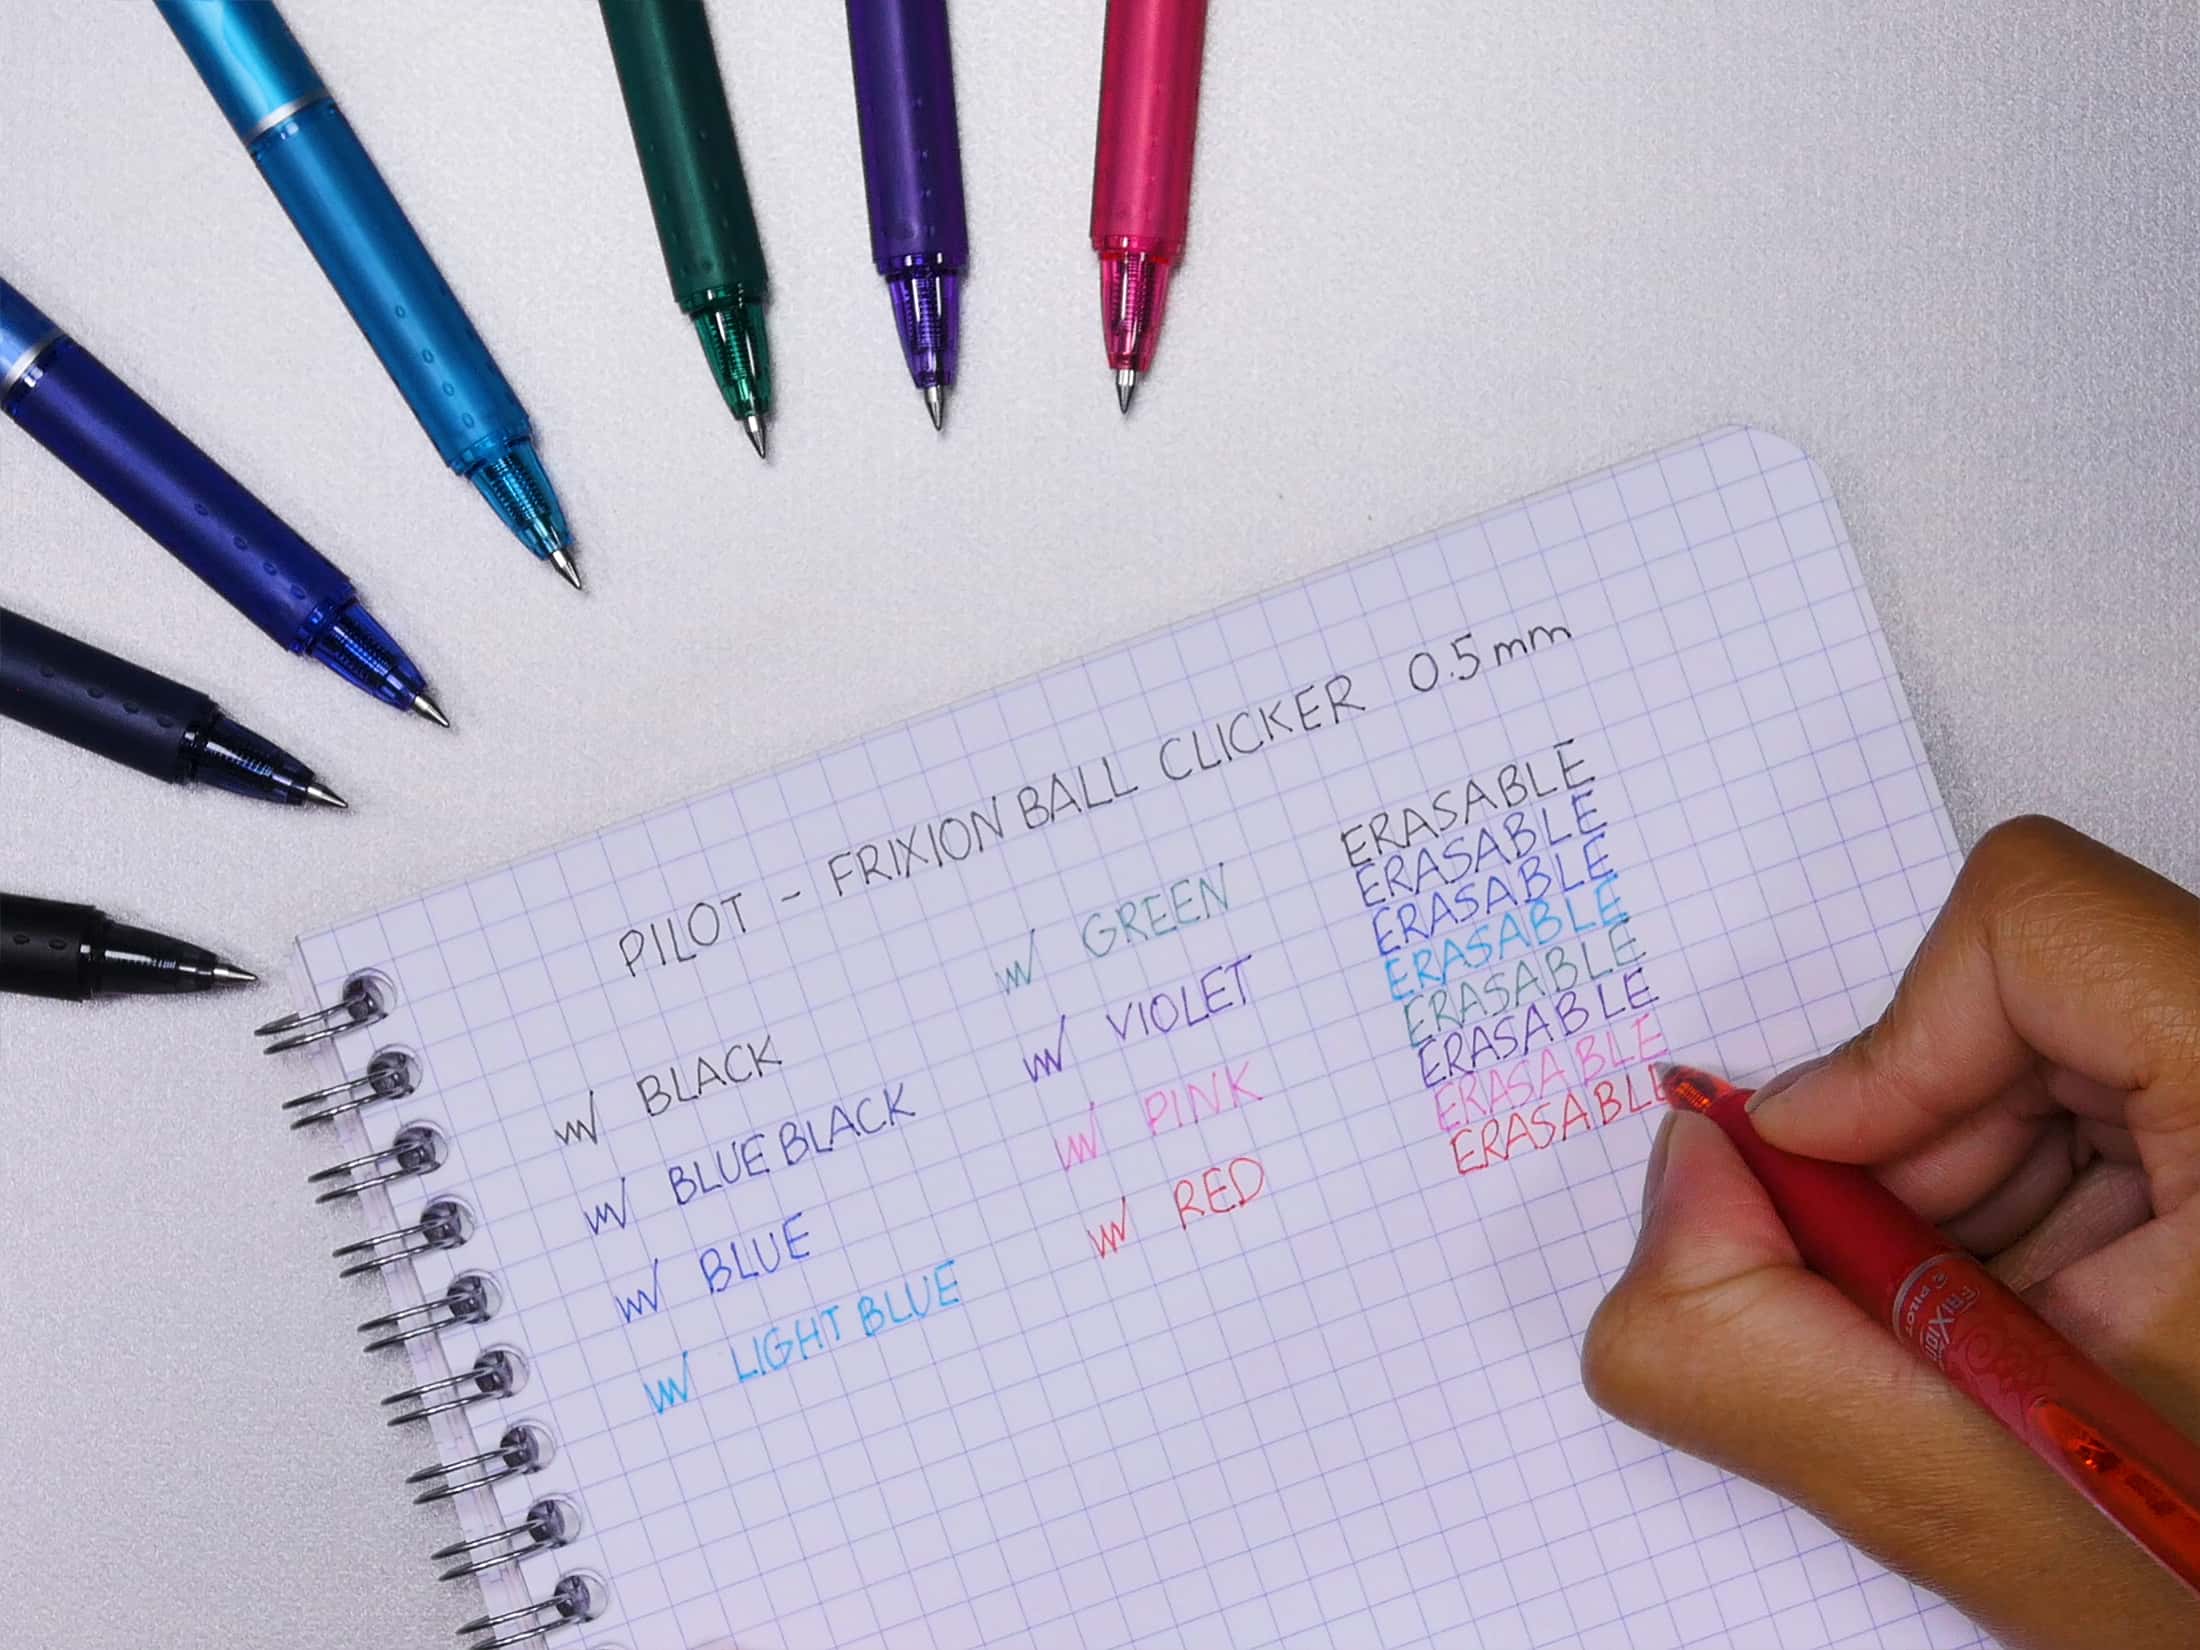 PILOT - FRIXION BALL CLICKER 0.5mm
BLACK
BLUE BLACK
BLUE
LIGHT BLUE
GREEN
VIOLET
PINK
RED
ERASABLE
ERASABLE
ERASABLE
ERASABLE
ERASABLE
ERASABLE
ERASABLE
ERASABLE
FRIXION
PILOT